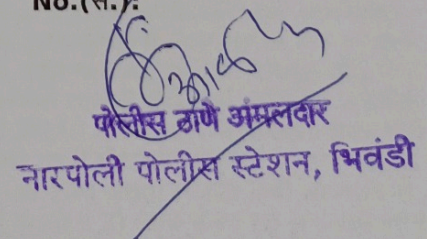 No.(सं.):
पोलीस ठाणे अंमलदार
नारपोली पोलीस स्टेशन, भिवंडी